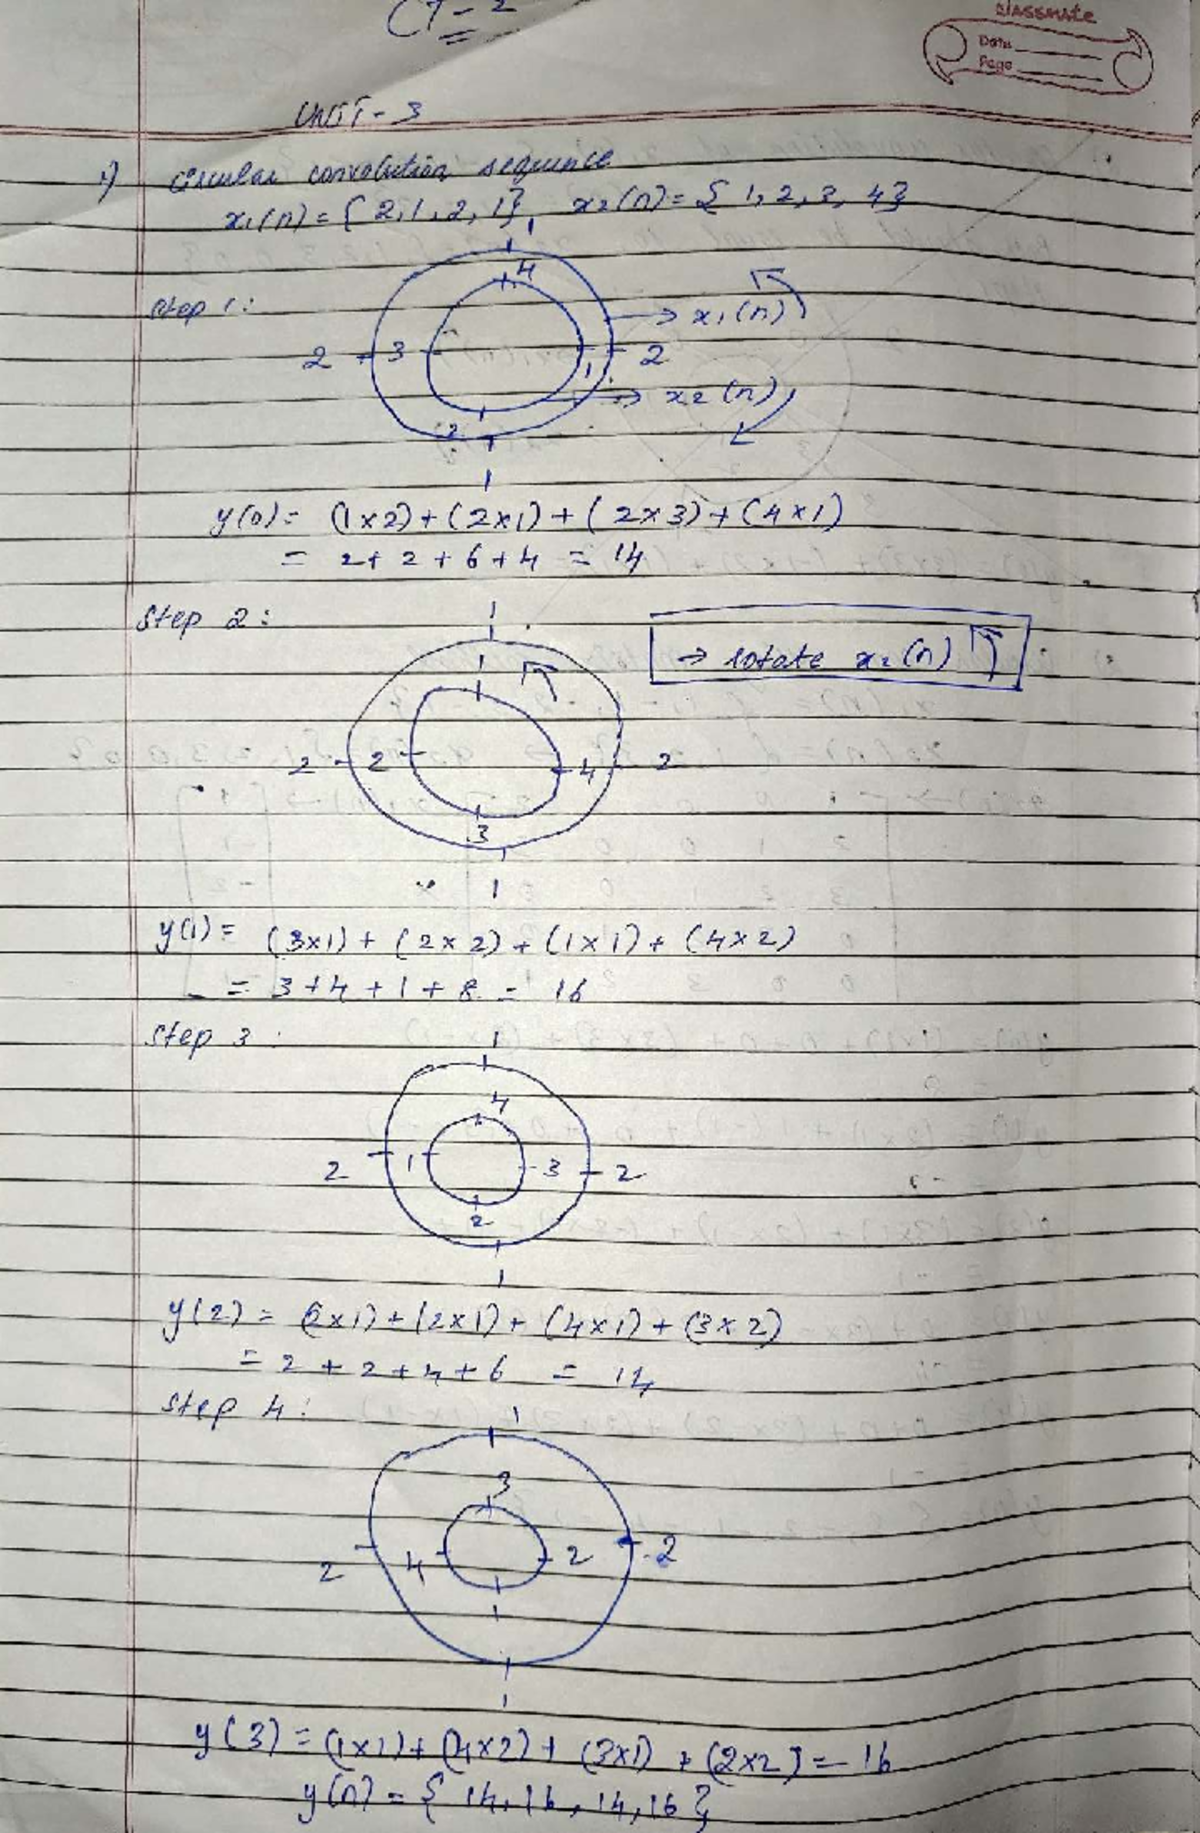 CT-2
classmate
Date
Page
UNIT-3
1) circular convolution sequence
x₁(n) = { 2,1,2,1} x₂(n) = { 1,2,3,4}
1
Step 1:
4
→ x₁(n)
2 3 1 2
→ x₂(n)
2
1
y(0) = (1×2)+(2×1)+(2×3)+(4×1)
= 2+2+6+4 = 14
Step 2:
1
→ rotate x₂(n)
1
2 2 4 2
3
1
y(1) = (3×1)+(2×2)+(1×1)+(4×2)
= 3+4+1+8 = 16
Step 3:
1
4
2 1 3 2
2
1
y(2) = (2×1)+(2×1)+(4×1)+(3×2)
= 2+2+4+6 = 14
Step 4:
1
3
2 4 2 2
1
1
y(3) = (1×1)+(4×2)+(3×1)+(2×2) = 16
y(n) = { 14, 16, 14, 16}